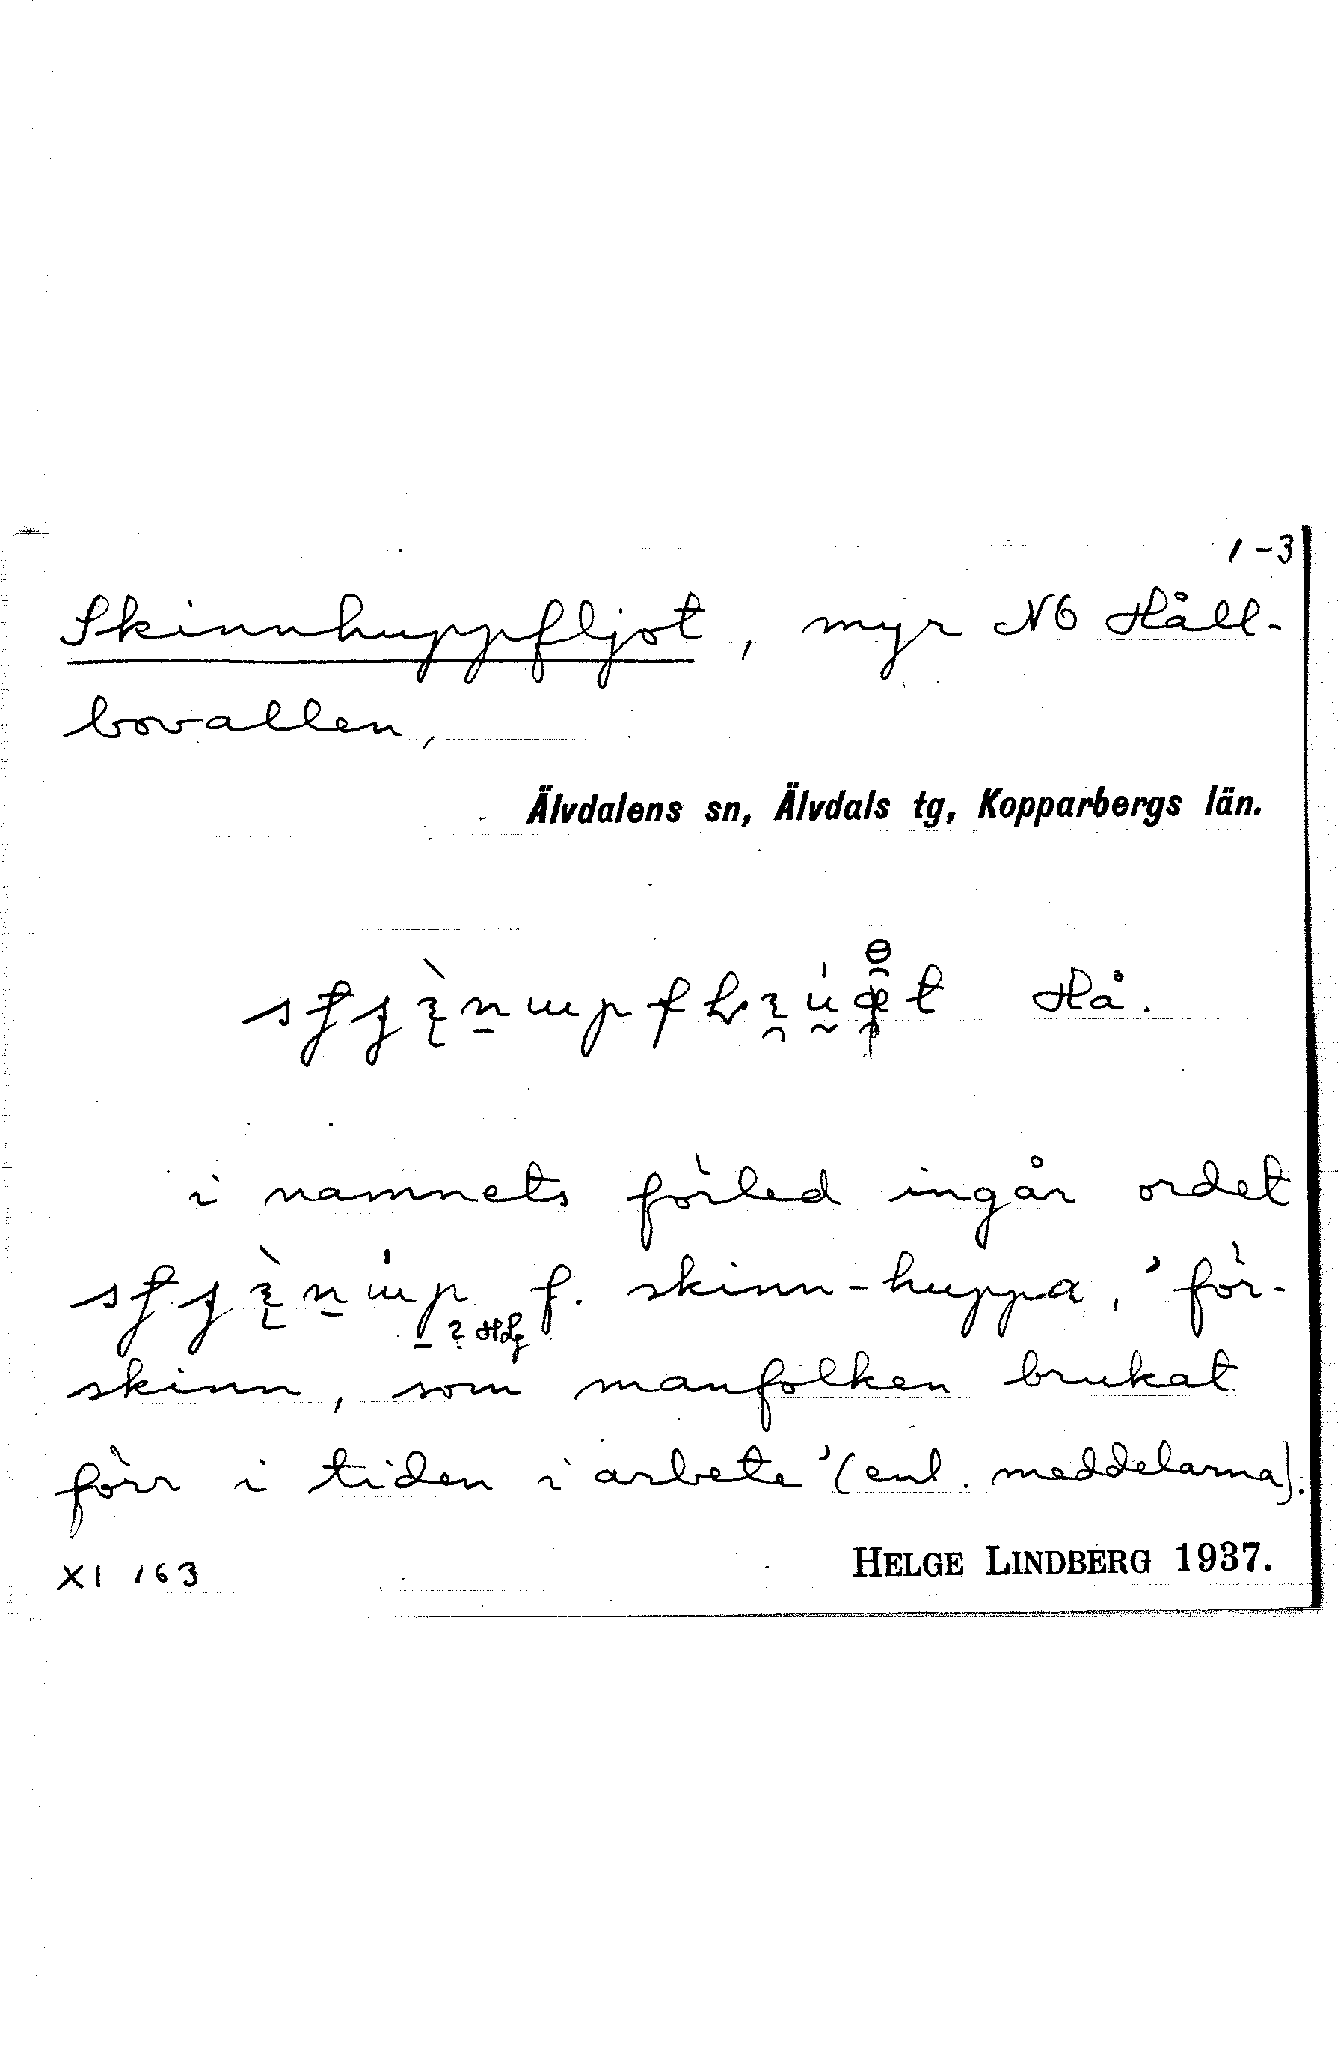 1-3
Skinnhuppfljot, myr NÖ Håll-
bovallen,
Älvdalens sn, Älvdals tg, Kopparbergs län.
Hå.
i namnets förled ingår ordet
f. skinn-huppa, 'för-
skinn, som manfolken brukat
förr i tiden i arbete' (enl. meddelarna).
XI 163
HELGE LINDBERG 1937.